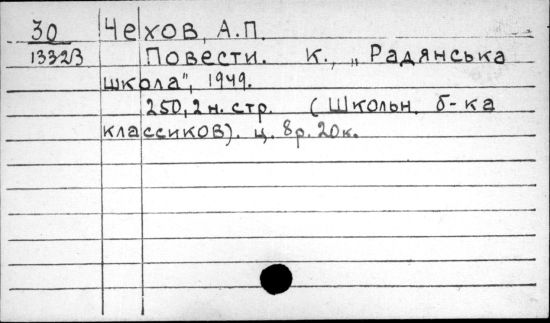 30 Чехов, А.П.
13323 Повести. К., „Радянська
школа", 1949.
250,2н.стр. (Школьн. б-ка
классиков). ц. 8р.20к.